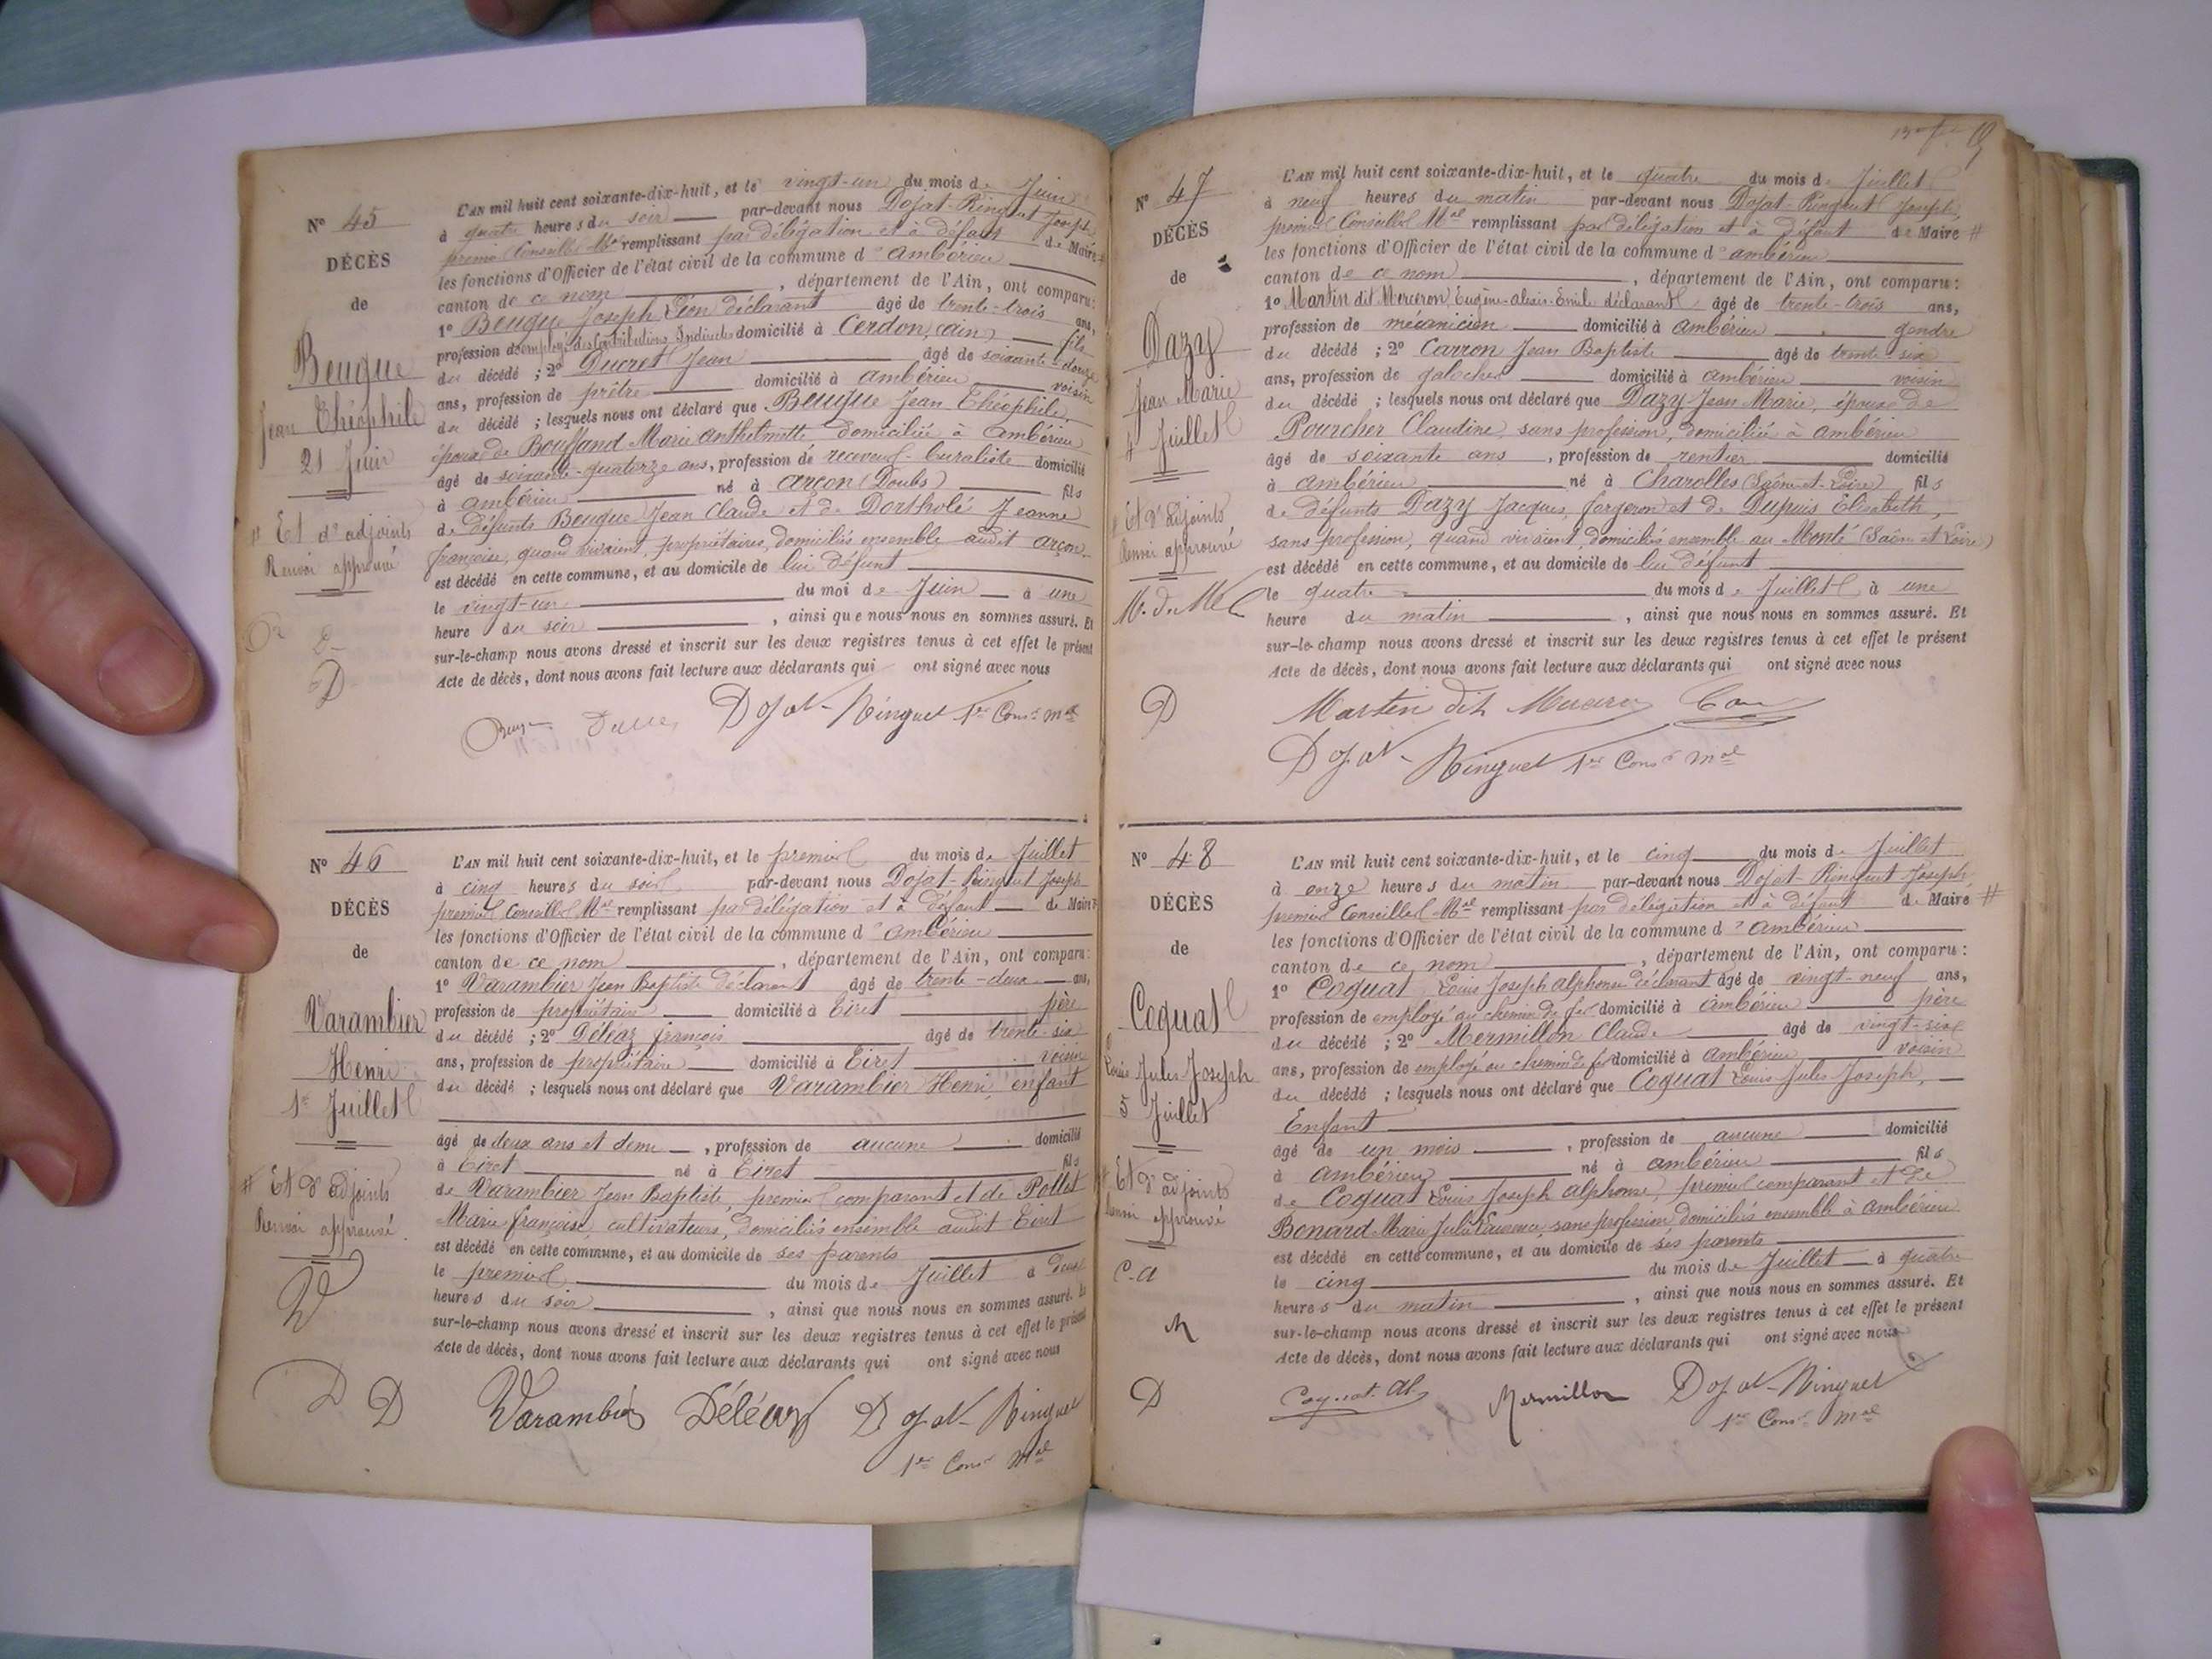 N° 45
DÉCÈS
de
Beuque
Jean Théophile
21 Juin
# Et d'adjoints
Renvoi approuvé
D
L'AN mil huit cent soixante-dix-huit, et le vingt-un du mois de Juin
à quatre heures du soir par-devant nous Dojat-Ringuet Joseph
premier Conseiller Mal remplissant par délégation et à défaut de Maire #
les fonctions d'Officier de l'état civil de la commune d'ambérieu
canton de ce nom, département de l'Ain, ont comparu:
1° Beuque Joseph Léon déclarant âgé de trente-trois ans,
profession de employé des Contributions Indirectes domicilié à Cerdon (ain) fils
du décédé ; 2° Ducret Jean âgé de soixante-douze
ans, profession de prêtre domicilié à ambérieu voisin
du décédé ; lesquels nous ont déclaré que Beuque Jean Théophile,
époux de Bouffand Marie Anthelmette domiciliée à ambérieu
âgé de soixante-quatorze ans, profession de receveur-buraliste domicilié
à ambérieu né à arçon (Doubs) fils
de défunts Beuque Jean Claude et de Dortholé Jeanne
françoise, quand vivaient, propriétaires, domiciliés ensemble audit arçon
est décédé en cette commune, et au domicile de lui défunt
le vingt-un du moi de Juin à une
heure du soir, ainsi que nous nous en sommes assuré. Et
sur-le-champ nous avons dressé et inscrit sur les deux registres tenus à cet effet le présent
Acte de décès, dont nous avons fait lecture aux déclarants qui ont signé avec nous
Dojat-Ringuet 1er Conser Mal
N° 46
DÉCÈS
de
Varambier
Henri
1er Juillet
# Et d'adjoints
Renvoi approuvé.
D D
L'AN mil huit cent soixante-dix-huit, et le premier du mois de Juillet
à cinq heures du soir par-devant nous Dojat-Ringuet Joseph
premier Conseiller Mal remplissant par délégation et à défaut de Maire #
les fonctions d'Officier de l'état civil de la commune d'ambérieu
canton de ce nom, département de l'Ain, ont comparu:
1° Varambier Jean Baptiste déclarant âgé de trente-deux ans,
profession de propriétaire domicilié à Tiret père
du décédé ; 2° Déléaz françois âgé de trente-six
ans, profession de propriétaire domicilié à Tiret voisin
du décédé ; lesquels nous ont déclaré que Varambier Henri, enfant
âgé de deux ans et demi, profession de aucune domicilié
à Tiret né à Tiret fils
de Varambier Jean Baptiste, premier comparant et de Pollet
Marie françoise, cultivateurs, domiciliés ensemble audit Tiret
est décédé en cette commune, et au domicile de ses parents
le premier du mois de Juillet à deux
heures du soir, ainsi que nous nous en sommes assuré. Et
sur-le-champ nous avons dressé et inscrit sur les deux registres tenus à cet effet le présent
Acte de décès, dont nous avons fait lecture aux déclarants qui ont signé avec nous
Varambier Déléaz Dojat-Ringuet
1er Conser Mal
N° 47
DÉCÈS
de
Dazy
Jean Marie
4 Juillet
# Et d'adjoints
Renvoi approuvé
M. d. M
D
L'AN mil huit cent soixante-dix-huit, et le quatre du mois de Juillet
à neuf heures du matin par-devant nous Dojat-Ringuet Joseph,
premier Conseiller Mal remplissant par délégation et à défaut de Maire #
les fonctions d'Officier de l'état civil de la commune d'ambérieu
canton de ce nom, département de l'Ain, ont comparu:
1° Martin dit Merceron, Eugène-alexis-Emile déclarant âgé de trente-trois ans,
profession de mécanicien domicilié à ambérieu gendre
du décédé ; 2° Carron Jean Baptiste âgé de trente-six
ans, profession de galocher domicilié à ambérieu voisin
du décédé ; lesquels nous ont déclaré que Dazy Jean Marie, époux de
Pourcher Claudine, sans profession, domiciliée à ambérieu
âgé de soixante ans, profession de rentier domicilié
à ambérieu né à Charolles (Saône-et-Loire) fils
de défunts Dazy Jacques, forgeron et de Dupuis Elisabeth,
sans profession, quand vivaient, domiciliés ensemble au Monté (Saône et Loire)
est décédé en cette commune, et au domicile de lui défunt
le quatre du mois de Juillet à une
heure du matin, ainsi que nous nous en sommes assuré. Et
sur-le-champ nous avons dressé et inscrit sur les deux registres tenus à cet effet le présent
Acte de décès, dont nous avons fait lecture aux déclarants qui ont signé avec nous
Martin dit
Dojat-Ringuet 1er Conser Mal
N° 48
DÉCÈS
de
Coquat
Louis Jules Joseph
5 Juillet
# Et d'adjoints
Renvoi approuvé
C.a
M
D
L'AN mil huit cent soixante-dix-huit, et le cinq du mois de Juillet
à onze heures du matin par-devant nous Dojat-Ringuet Joseph
premier Conseiller Mal remplissant par délégation et à défaut de Maire #
les fonctions d'Officier de l'état civil de la commune d'ambérieu
canton de ce nom, département de l'Ain, ont comparu:
1° Coquat Louis Joseph alphonse déclarant âgé de vingt-neuf ans,
profession de employé au chemin de fer domicilié à ambérieu père
du décédé ; 2° Mermillon Claude âgé de vingt-six
ans, profession de employé au chemin de fer domicilié à ambérieu voisin
du décédé ; lesquels nous ont déclaré que Coquat Louis Jules Joseph,
Enfant
âgé de un mois, profession de aucune domicilié
à ambérieu né à ambérieu fils
de Coquat Louis Joseph alphonse, premier comparant et de
Bonard Marie Julie Laurence, sans profession domiciliés ensemble à ambérieu
est décédé en cette commune, et au domicile de ses parents
le cinq du mois de Juillet à quatre
heures du matin, ainsi que nous nous en sommes assuré. Et
sur-le-champ nous avons dressé et inscrit sur les deux registres tenus à cet effet le présent
Acte de décès, dont nous avons fait lecture aux déclarants qui ont signé avec nous
Coquat. Al. Mermillon Dojat-Ringuet
1er Conser Mal